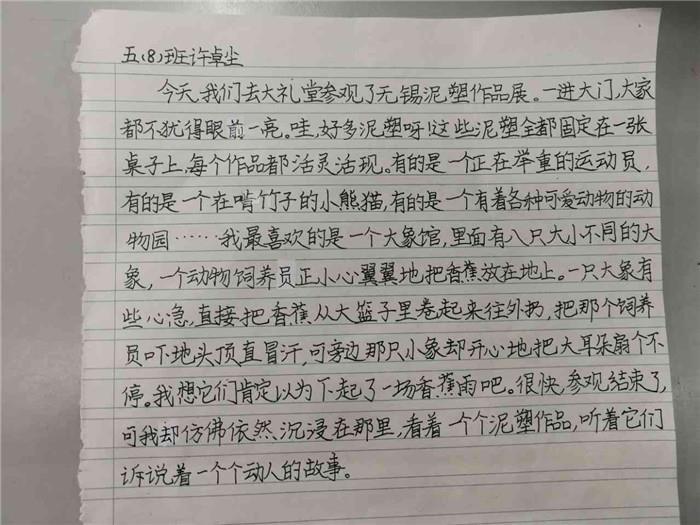 五(8)班许卓尘
今天,我们去大礼堂参观了无锡泥塑作品展。一进大门,大家
都不犹得眼前一亮。哇,好多泥塑呀!这些泥塑全都固定在一张
桌子上,每个作品都活灵活现。有的是一个正在举重的运动员,
有的是一个在啃竹子的小熊猫,有的是一个有着各种可爱动物的动
物园……我最喜欢的是一个大象馆,里面有八只大小不同的大
象,一个动物饲养员正小心翼翼地把香蕉放在地上。一只大象有
些心急,直接把香蕉从大篮子里卷起来往外扔,把那个饲养
员吓地头顶直冒汗,可旁边那只小象却开心地把大耳朵扇个不
停。我想它们肯定以为下起了一场香蕉雨吧。很快,参观结束了,
可我却仿佛依然沉浸在那里,看着一个个泥塑作品,听着它们
诉说着一个个动人的故事。